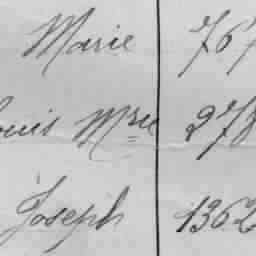 Marie 767
ouis Mrie 278
Joseph 1362